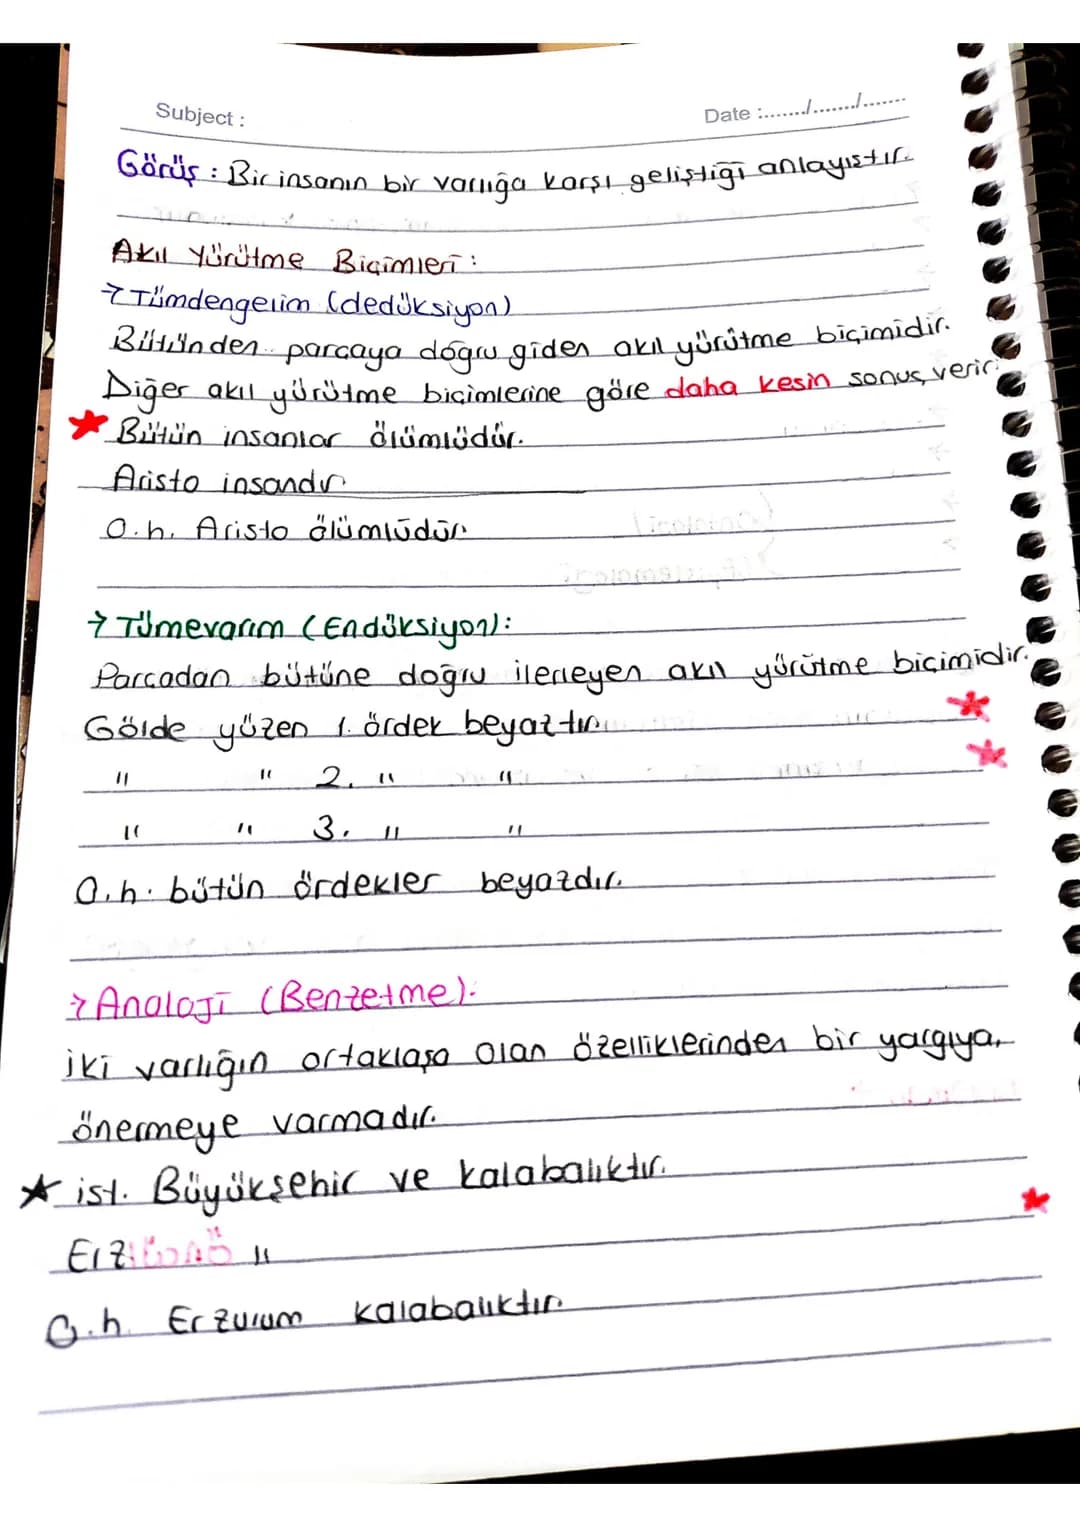 Subject :
Date :......../......../.......
Görüş : Bir insanın bir varlığa karşı geliştiği anlayıştır.
Akıl Yürütme Biçimleri :
→ Tümdengelim (dedüksiyon)
Bütünden parçaya doğru giden akıl yürütme biçimidir.
Diğer akıl yürütme biçimlerine göre daha kesin sonuç verir.
★ Bütün insanlar ölümlüdür.
Aristo insandır
O.h. Aristo ölümlüdür.
→ Tümevarım (Endüksiyon):
Parcadan bütüne doğru ilerleyen akıl yürütme biçimidir.
Gölde yüzen 1. ördek beyaztır.
" " 2. " "
" " 3. " "
O.h. bütün ördekler beyazdır.
→ Analoji (Benzetme):
İki varlığın ortaklaşa olan özelliklerinden bir yargıya,
önermeye varmadır.
★ ist. Büyükşehir ve kalabalıktır.
"
O.h. Erzurum kalabalıktır.